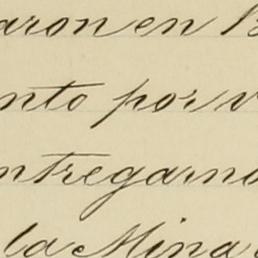 aron en B
nto por v
ntregarno
la Mina